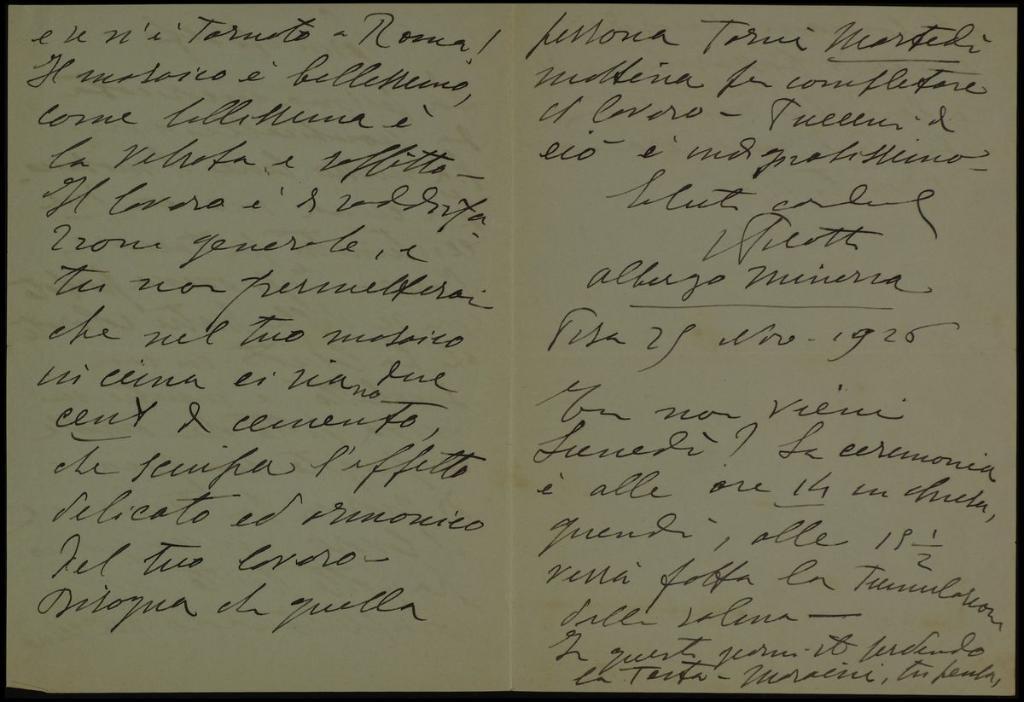 e se n'è tornato a Roma!
Il mosaico è bellissimo,
come bellissima è
la vetrata e soffitto —
Il lavoro è di soddisfa-
zione generale, e
tu non permetterai
che nel tuo mosaico
in cima ci siano due
cent di cemento,
che sciupa l'effetto
delicato ed armonico
del tuo lavoro —
Bisogna che quella
persona torni Martedì
mattina per completare
il lavoro — Puccini di
ciò è indignatissimo —
Saluti cordiali
Pilotti
albergo Minerva
Pisa 25 Nov. 1926
Tu non vieni
Lunedì? La ceremonia
è alle ore 14 in chiesa,
quindi, alle 15 1/2
verrà fatta la tumulazione
della salma —
In questi giorni sto perdendo
la testa — tu pensa,